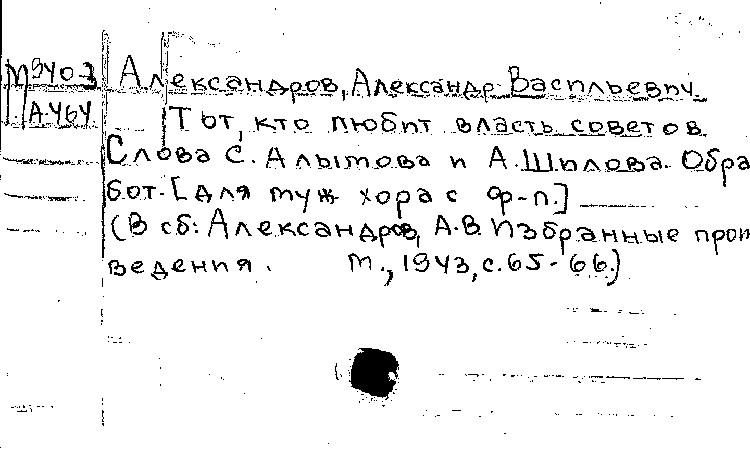 М940з Александров, Александр Васильевич
А464 Тот, кто любит власть советов
Слова С. Алымова и А. Шилова. Обра
бот. [для муж хора с ф-п.]
(В сб: Александров, А.В. Избранные прои
ведения. М., 1943, с. 65-66.)